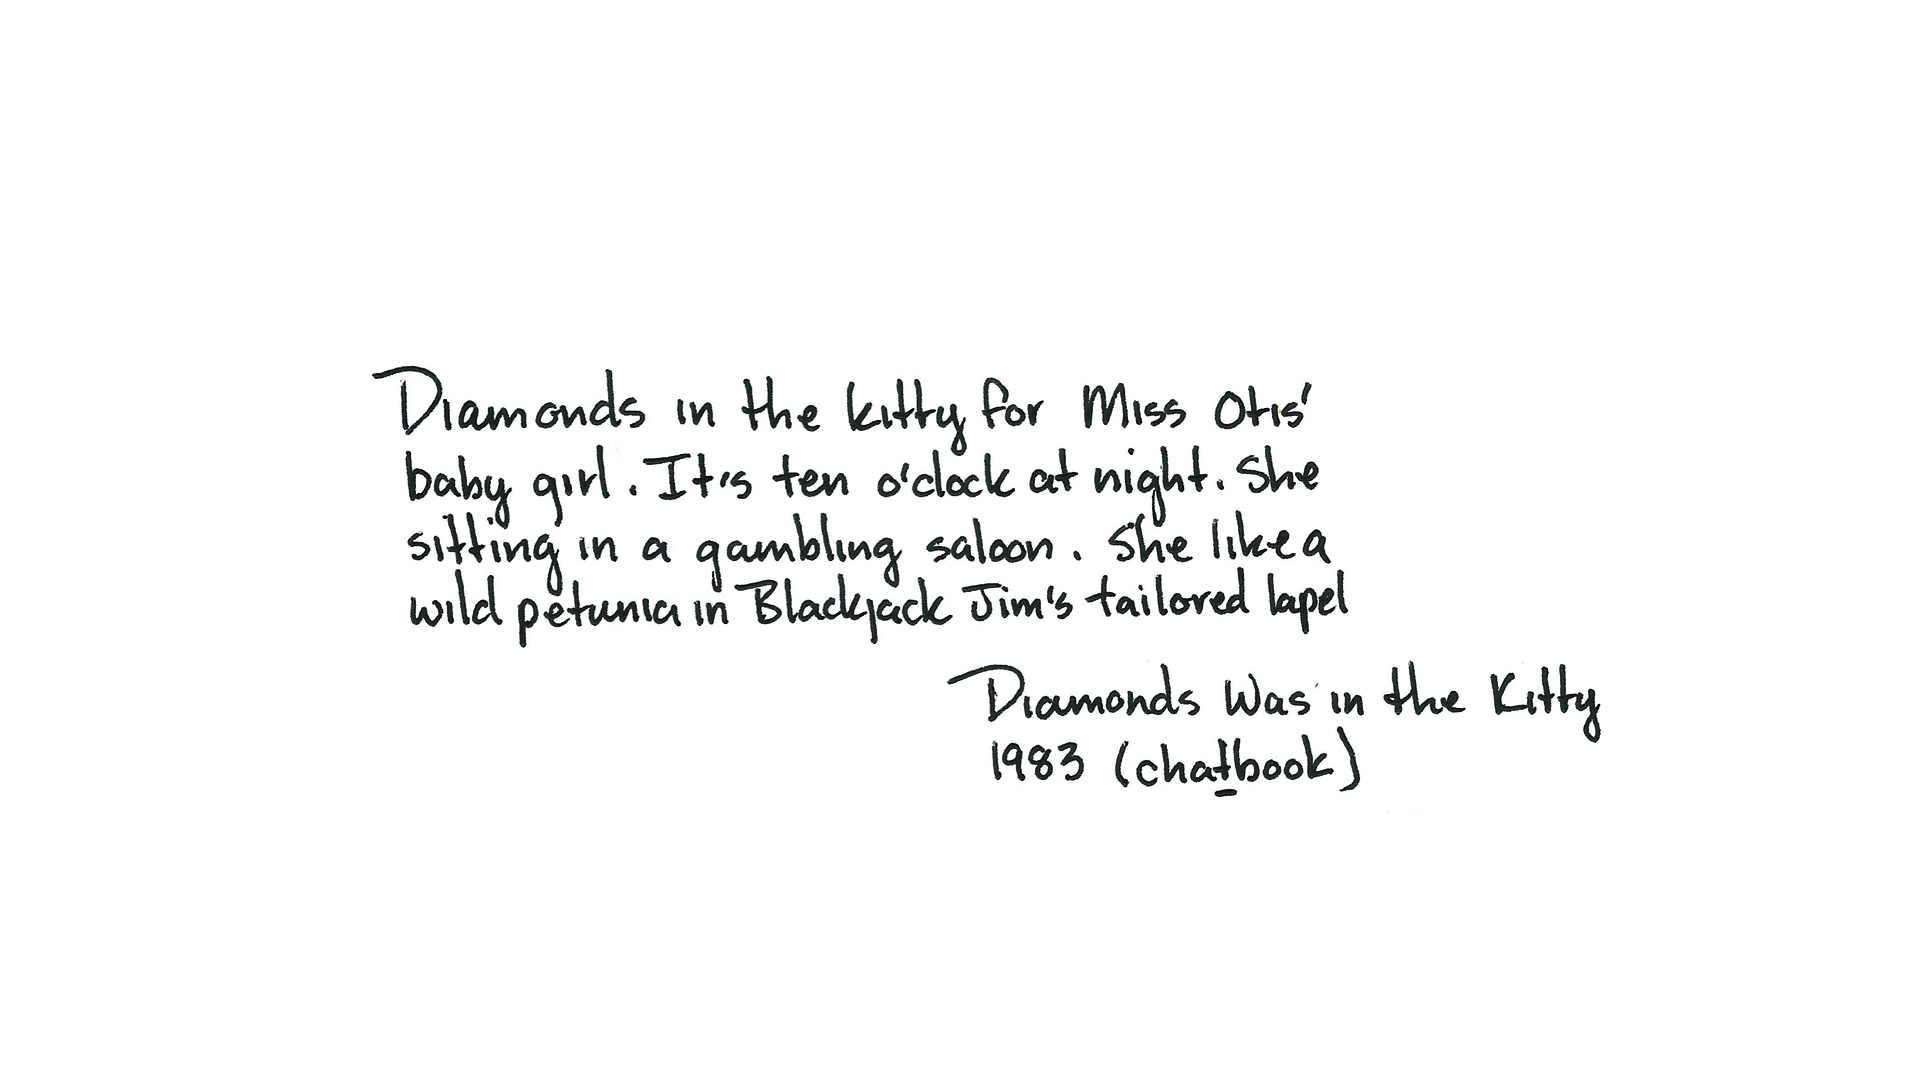 Diamonds in the kitty for Miss Otis'
baby girl. It's ten o'clock at night. She
sitting in a gambling saloon. She like a
wild petunia in Blackjack Jim's tailored lapel
Diamonds Was in the Kitty
1983 (chatbook)